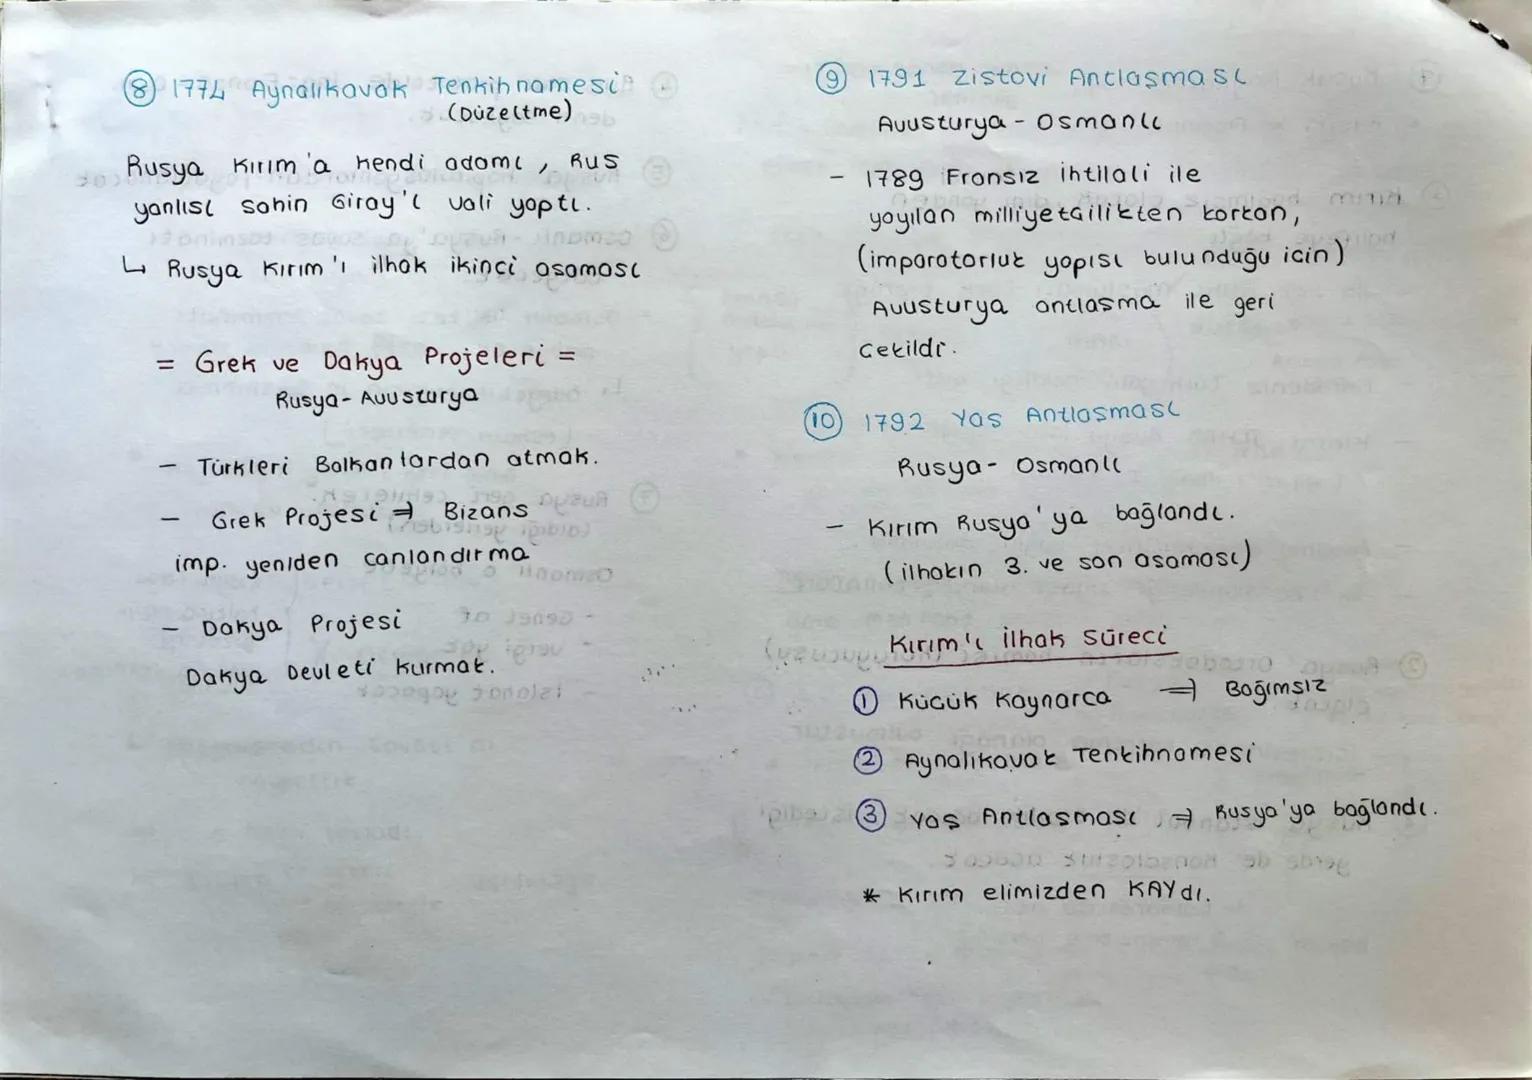 ⑧ 1774 Aynalıkavak Tenkihnamesi
(Düzeltme)
Rusya Kırım'a kendi adamı, Rus
yanlısı Şahin Giray'ı vali yaptı.
↳ Rusya Kırım'ı ilhak ikinci aşaması
= Grek ve Dakya Projeleri =
Rusya - Avusturya
- Türkleri Balkanlardan atmak.
- Grek Projesi ⇒ Bizans
imp. yeniden canlandırma
- Dakya Projesi
Dakya Devleti Kurmak.
⑨ 1791 Ziştovi Antlaşması
Avusturya - Osmanlı
- 1789 Fransız ihtilali ile
yayılan milliyetçilikten korkan,
(imparatorluk yapısı bulunduğu için)
Avusturya antlaşma ile geri
çekildi.
⑩ 1792 Yaş Antlaşması
Rusya - Osmanlı
- Kırım Rusya'ya bağlandı.
(ilhakın 3. ve son aşaması)
Kırım'ı ilhak Süreci
① Küçük Kaynarca ⇒ Bağımsız
② Aynalıkavak Tenkihnamesi
③ Yaş Antlaşması ⇒ Rusya'ya bağlandı.
* Kırım elimizden KAYdı.